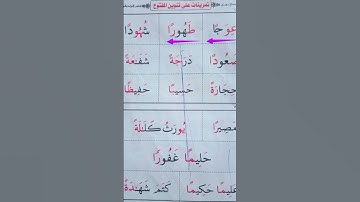 تمرينات على تنوين المفتوح
عِوَجًا طَهُورًا شُهُودًا
صَعُودًا دَرَجَةً شَفَعَةً
حِجَارَةً حَسِيبًا حَفِيظًا
مَصِيرًا يُورَثُ كَلَلَةً
حَلِيمًا غَفُورًا
عَلِيمًا حَكِيمًا كَتَمَ شَهَدَةً